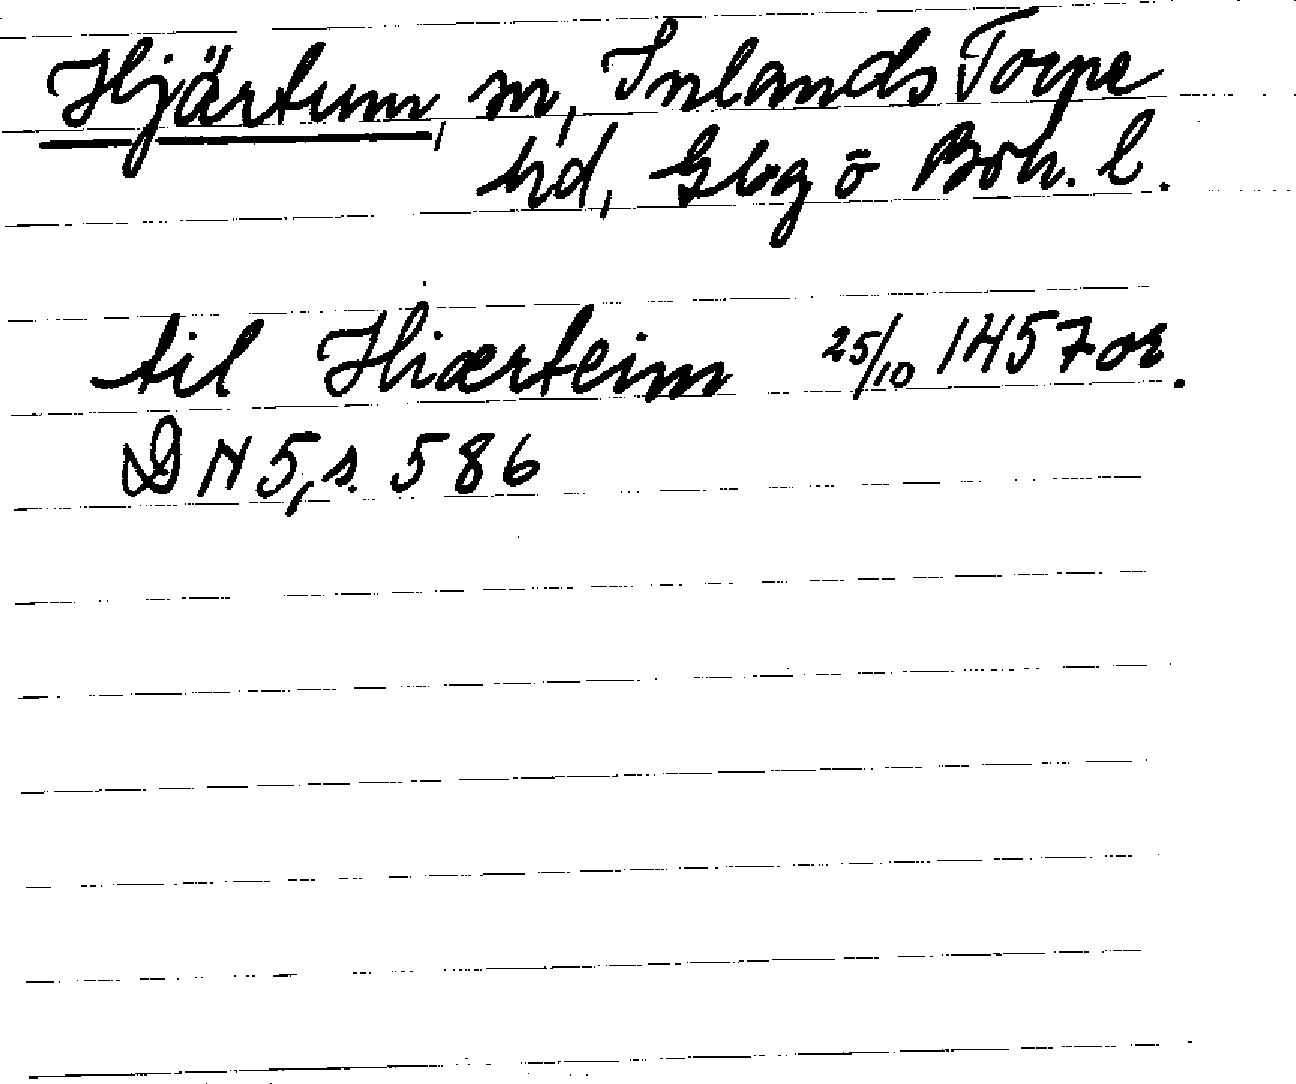 Hjärtum, sn, Inlands Torpe
hd, Gbg o Boh. l.
til Hiærteim 25/10 1457 or.
DN 5, s. 586